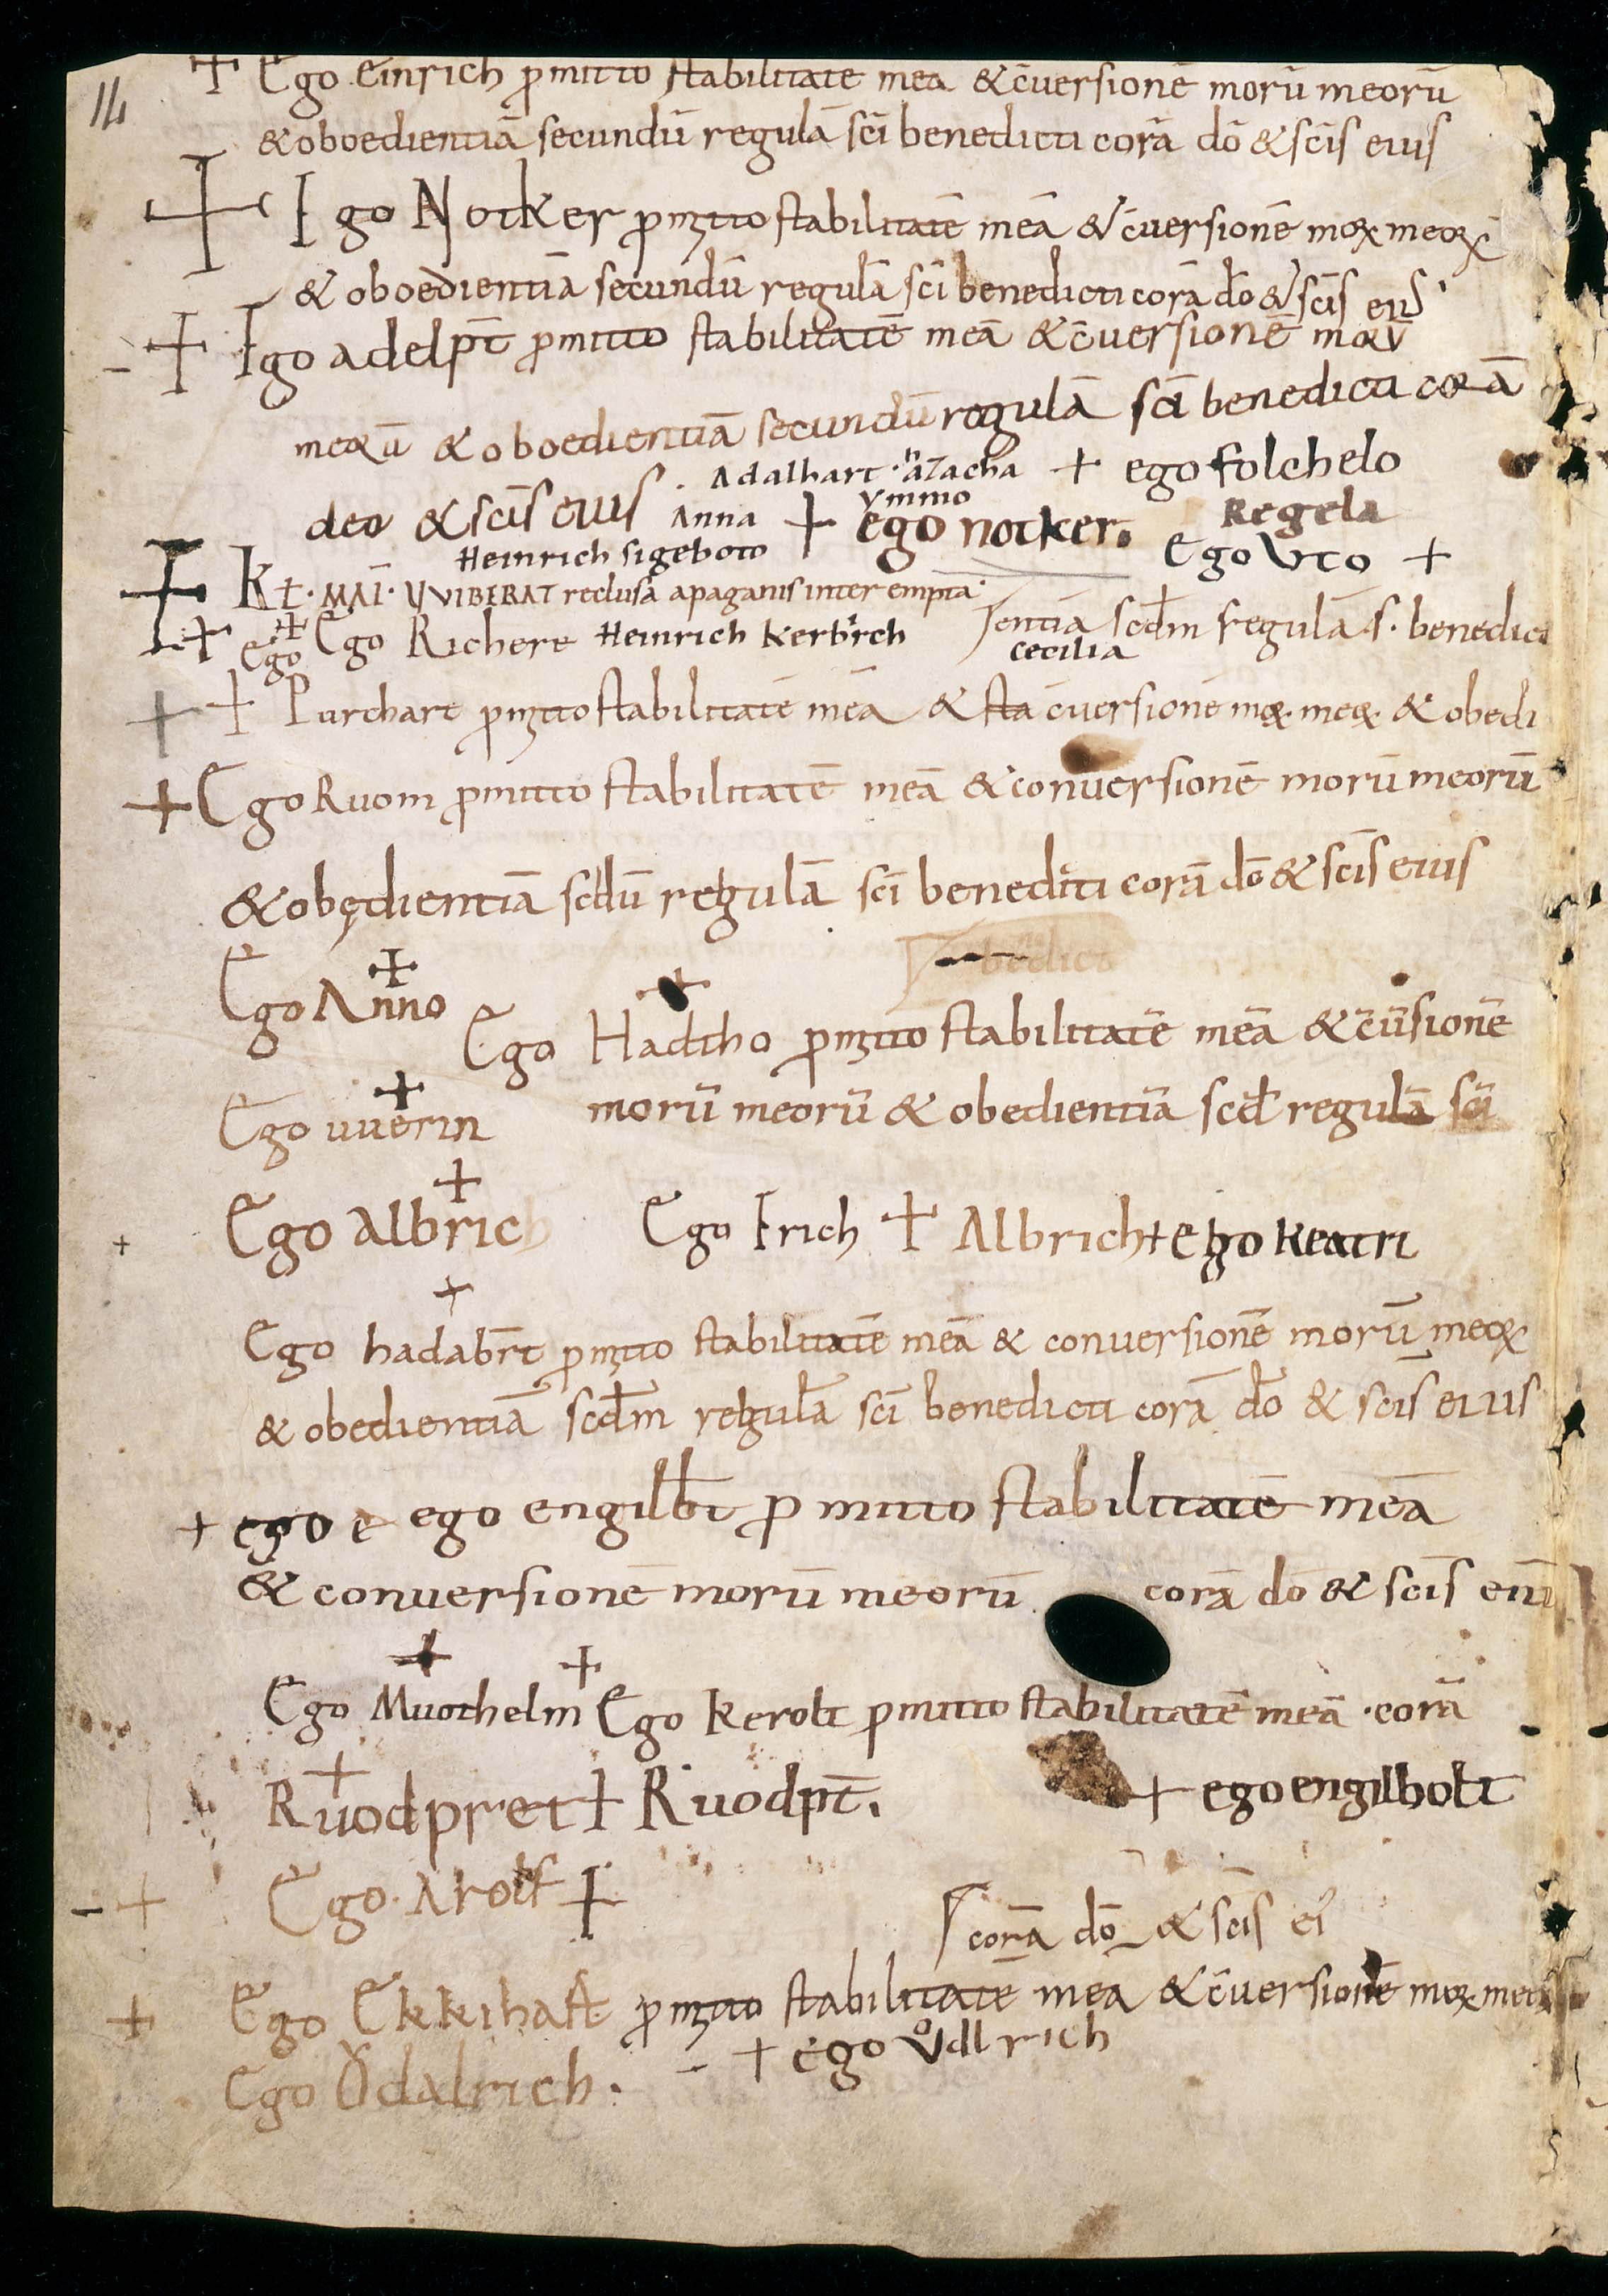 14
+ Ego Einrich p̄mitto stabilitatē meā & c̄uersionē morū meorū
& oboedientiā secundū regulā sc̄i benedicti corā dō & sc̄is eius
+ Ego Notker p̄mitto stabilitatē meā & c̄uersionē moꝝ meoꝝ
& oboedientiā secundū regulā sc̄i benedicti corā dō & sc̄is eius
+ Ego adelp̄t p̄mitto stabilitatē meā & c̄uersionē morū
meorū & oboedientiā secundū regulā sc̄i benedicti corā
Adalhart · azacha + ego folchelo
deo & sc̄is eius · Anna ymmo Regela
+ ego notker.
Heinrich sigeboto Ego Vto +
+ Kł · MAĪ · VVIBERAT reclusa a paganis interempta ·
+ Ego + Ego Richere Heinrich Kerbirch entiā scdm̄ regulā s. benedicti
cecilia
+ + Purchart p̄mitto stabilitatē meā & sta c̄uersionē moꝝ. meoꝝ. & obedi
+ Ego Ruom p̄mitto stabilitatē meā & conuersionē morū meorū
& obędientiā scdū regulā sc̄i benedicti corā dō & sc̄is eius
benedicti
Ego Anno +
+ Ego Hadtho p̄mitto stabilitatē meā & c̄uersionē
morū meorū & obedientiā scd̄ regulā sc̄i
Ego uuerin +
Ego albrich + Ego Erich + Albrich + Ego Keatri
+
Ego hadabr̄t p̄mitto stabilitatē meā & conuersionē morū meoꝝ
& obedientiā scdm̄ regulā sc̄i benedicti corā dō & sc̄is eius
+ ego e ego engilb̄t p̄mitto stabilitatē meā
& conuersionē morū meorū corā dō & sc̄is eius
+ +
Ego Muothelm Ego Kerolt p̄mitto stabilitatē meā · corā
+ Ruodpret + Ruodp̄t. + ego engilbolt
- + Ego · Arolf +
corā dō & sc̄is ei
+ Ego Ekkihart p̄mitto stabilitatē meā & c̄uersionē moꝝ meoꝝ
- + ego Vͦdlrich
Ego Ŏdalrich.